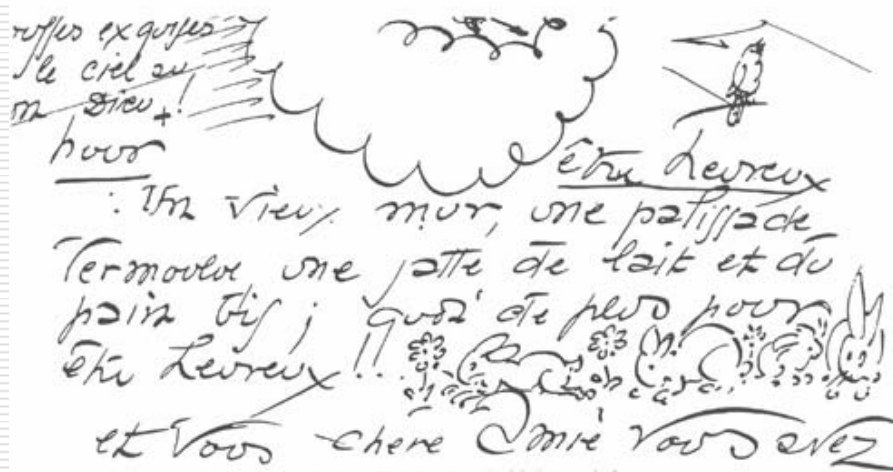 exquises
le ciel au
Dieu!
pour être heureux
: Un vieux mur, une palissade
vermoulue une jatte de lait et du
pain bis ; quoi de plus pour
être heureux !!
et vous chère Amie vous avez